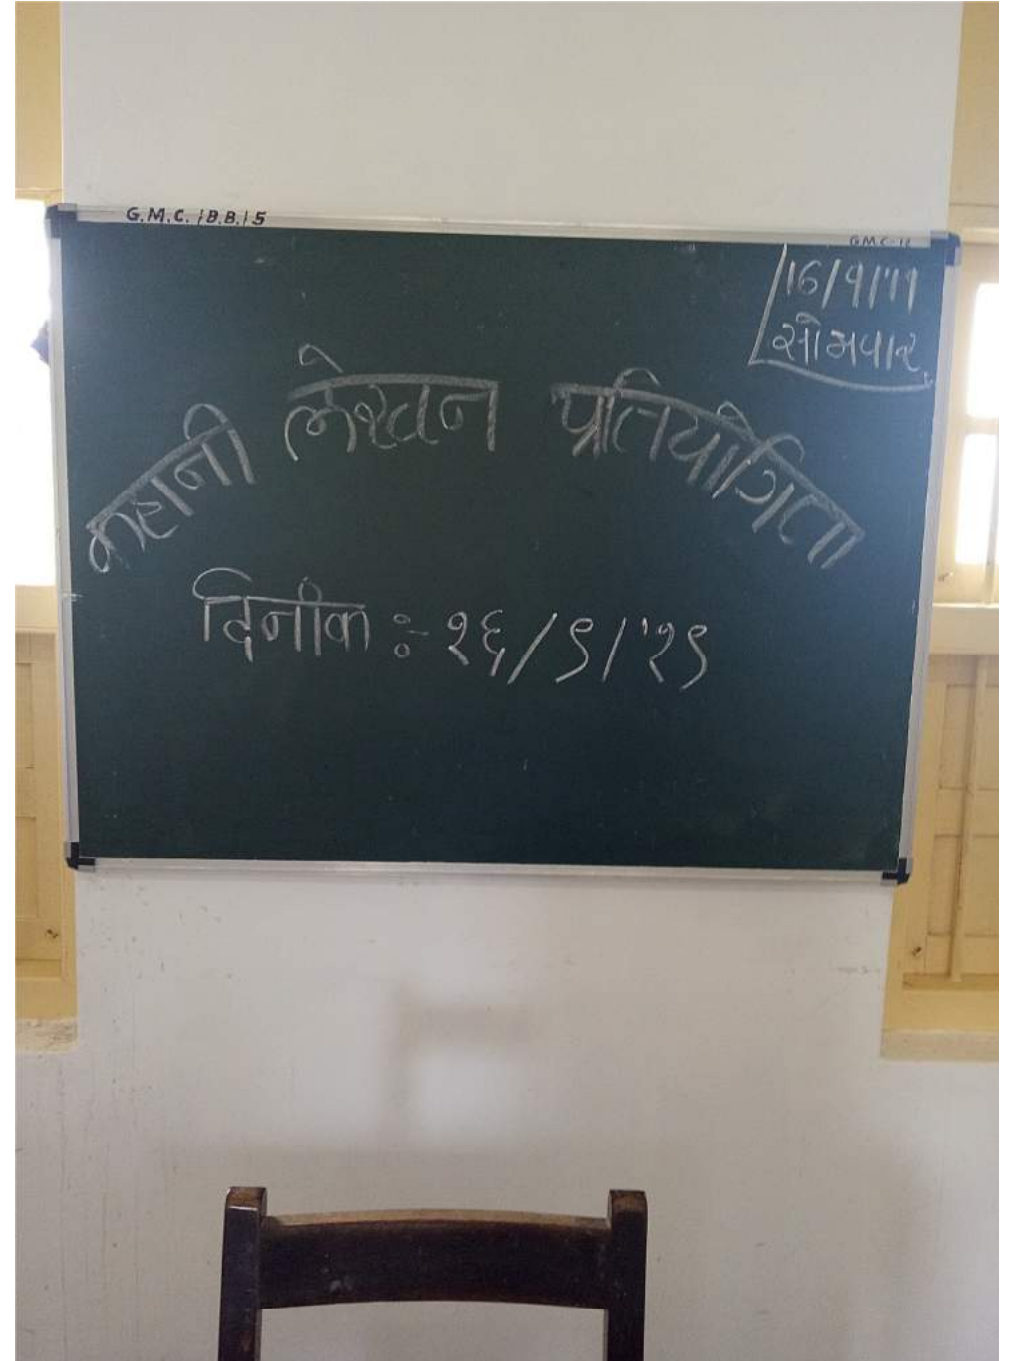 G.M.C. / B.B. / 5
GMC-12
16/9/19
सोमवार
कहानी लेखन प्रतियोगिता
दिनांक :- १६/९/'१९